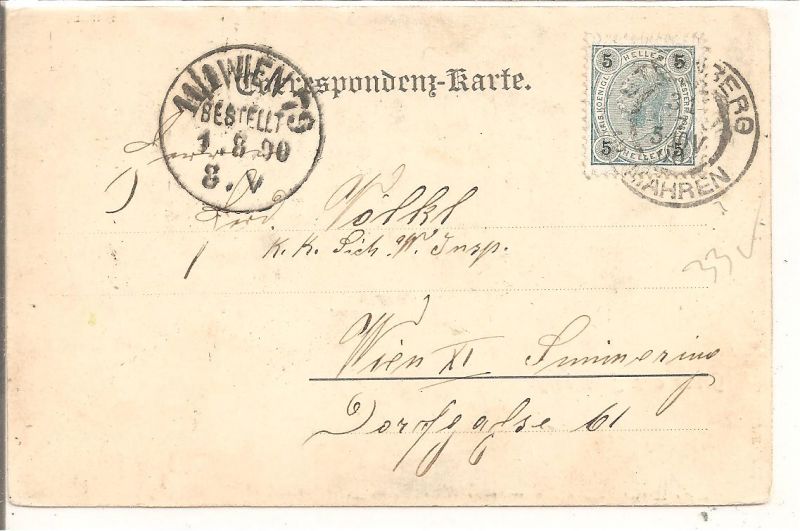 Correspondenz-Karte.
WIEN
BESTELLT
1.8.00
8.V
5 HELLER 5
KAIS. KOENIGL.
5 HELLER 5
MÄHREN
Völkl
K. K. Sich. W. Insp.
Wien XI Simmering
Dorfgasse 61
33